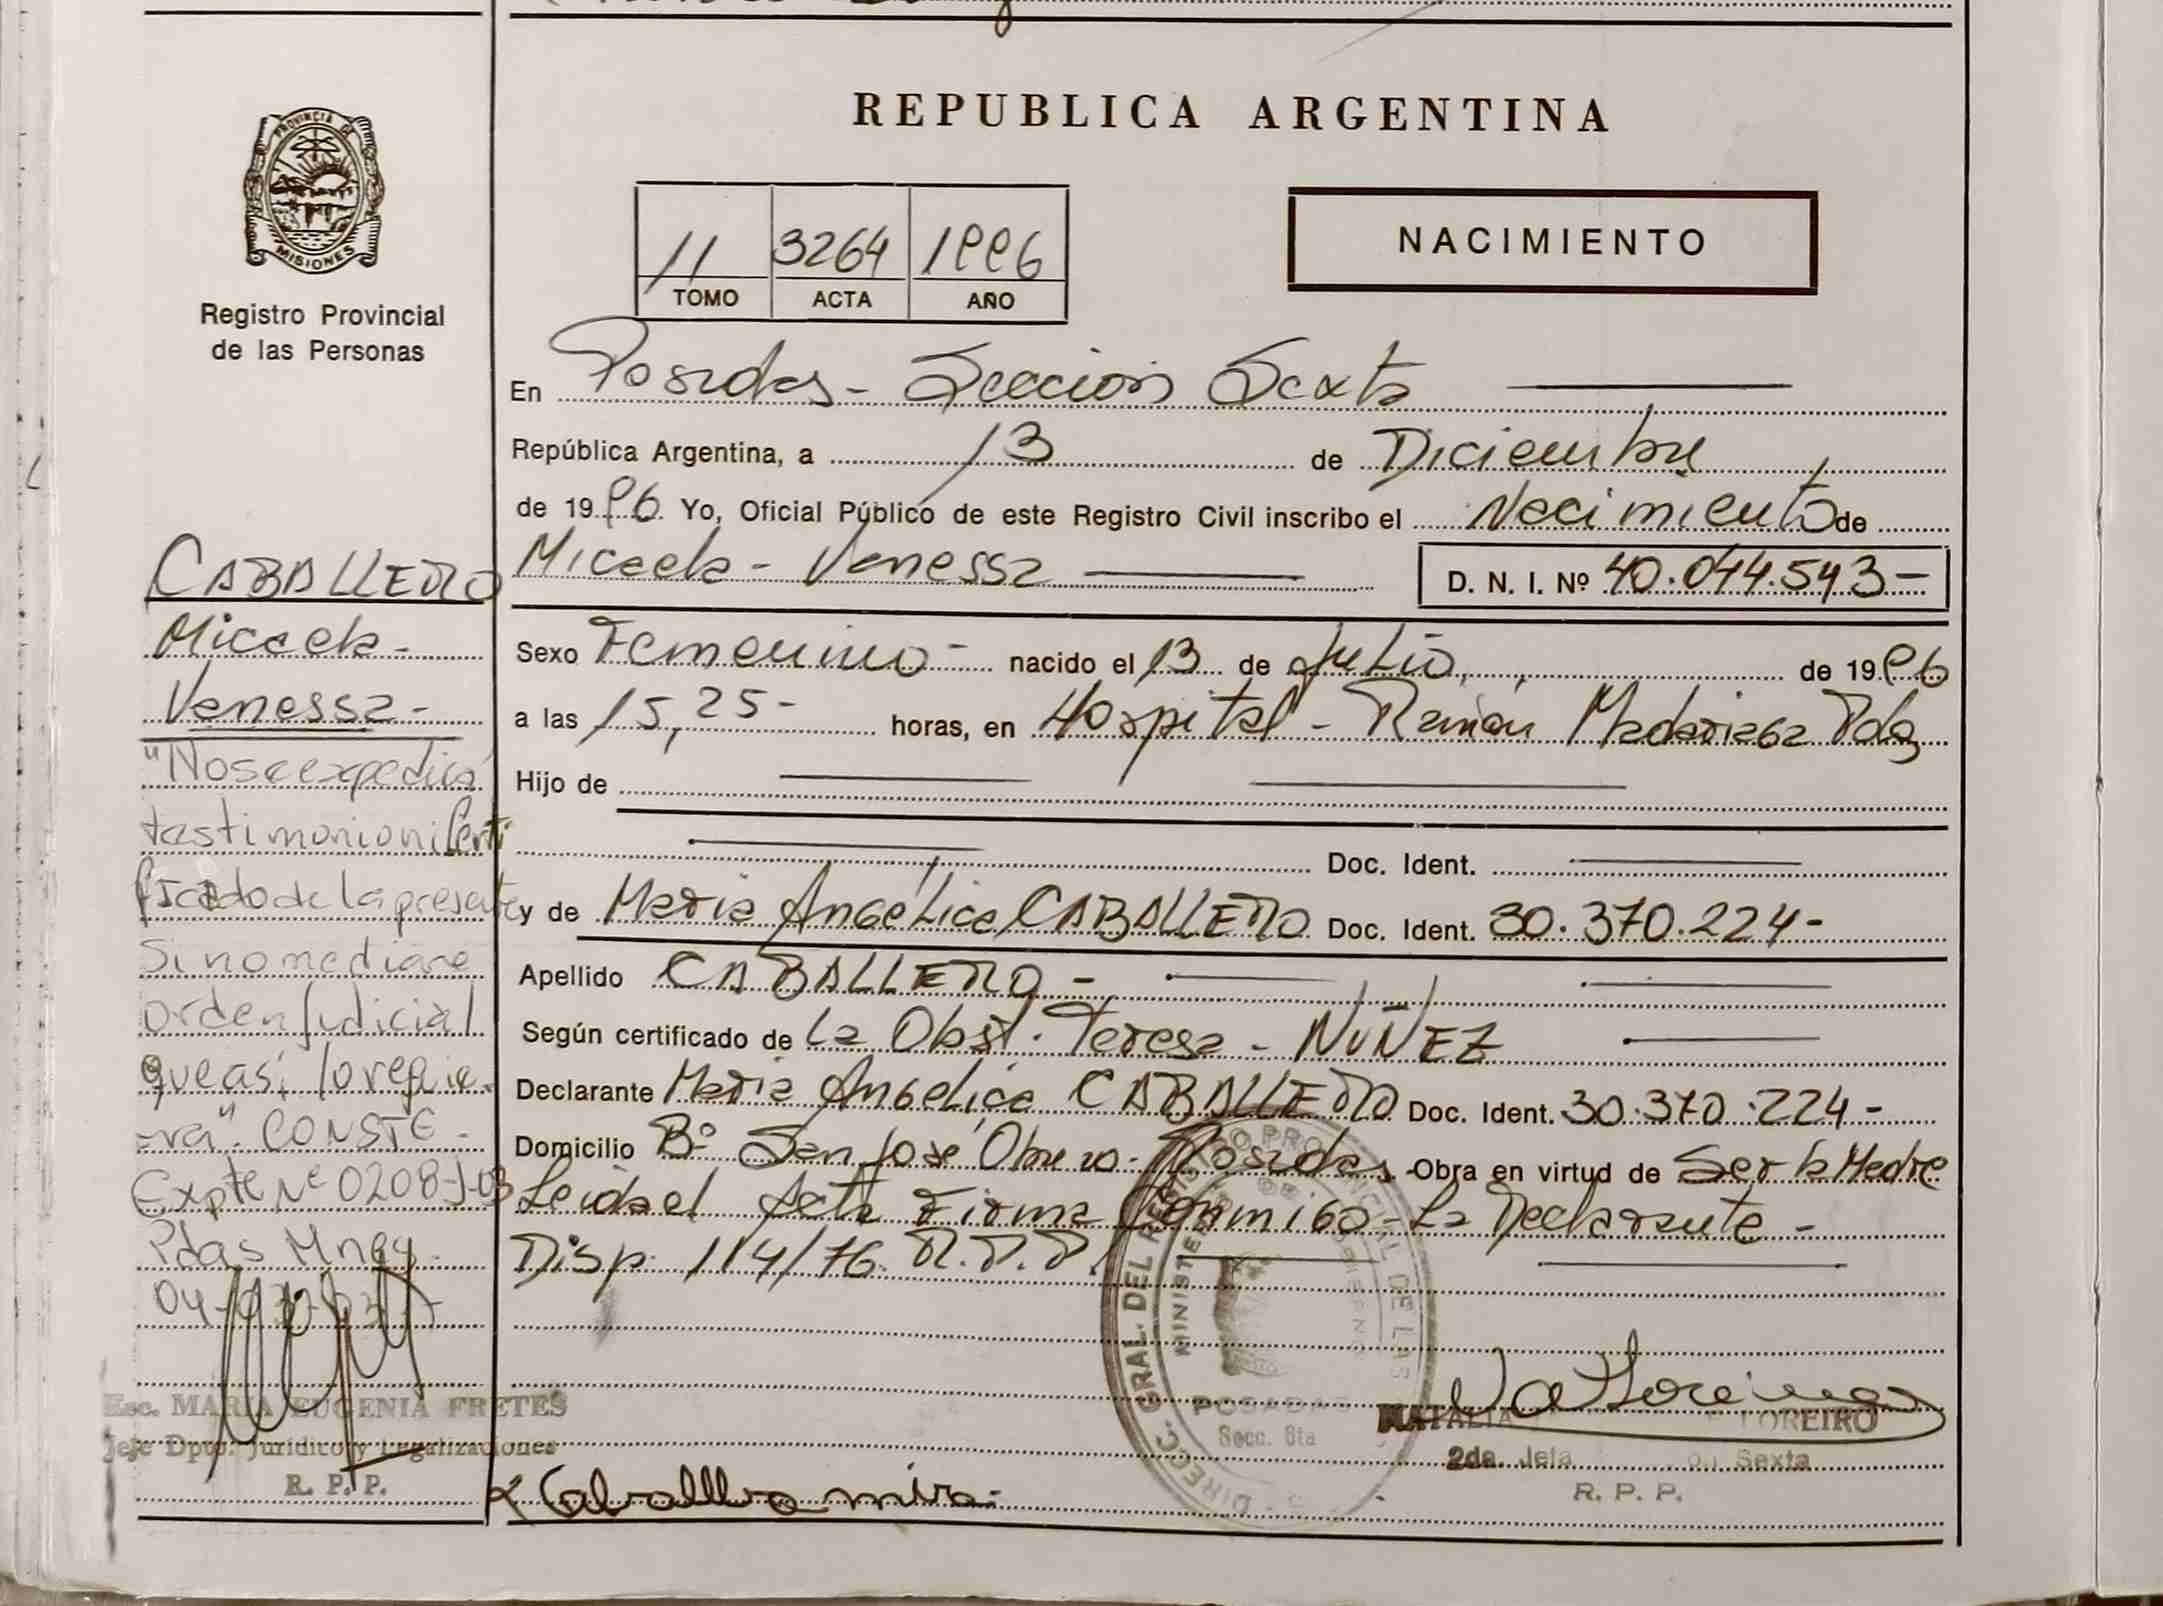 REPUBLICA ARGENTINA
PROVINCIA DE
MISIONES
Registro Provincial
de las Personas
11 3264 1996
TOMO ACTA AÑO
NACIMIENTO
En Posadas - Seccion Sexta
República Argentina, a 13 de Diciembre
de 1996 Yo, Oficial Público de este Registro Civil inscribo el Nacimiento de
Micaela - Vanessa D. N. I. Nº 40.044.543-
Sexo Femenino - nacido el 13 de Julio, de 1996
a las 15,25- horas, en Hospital - Ramón Madariaga Pdas
Hijo de
Doc. Ident.
y de Maria Angélica CABALLERO Doc. Ident. 30.370.224-
Apellido CABALLERO -
Según certificado de La Obst. Teresa - NUÑEZ
Declarante Maria Angélica CABALLERO Doc. Ident. 30.370.224-
Domicilio Bº San José Obrero - Posadas - Obra en virtud de Ser la Madre
Leida el Acta Firma Conmigo - La Declarante -
Disp. 114/76. R.P.P.
CABALLERO
Micaela -
Vanessa -
"No se expedirá
testimonio ni Certi
ficado de la presente
Si no mediare
orden Judicial
que así lo requie
-ra". CONSTE -
Expte Nº 0208-J-03
Pdas Mnes
Esc. MARIA EUGENIA FRETES
Jefe Dpto. Jurídico y Legalizaciones
R. P. P.
DIREC. GRAL. DEL REGISTRO PROVINCIAL DE LAS
MINISTERIO DE GOBIERNO
POSADAS
Secc. 6ta
NATALIA LOREIRO
2da. Jefa Sexta
R. P. P.